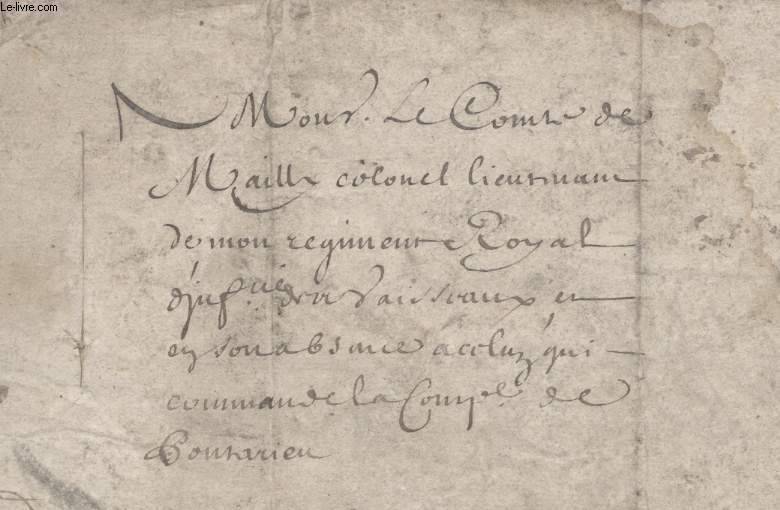 Le-livre.com
Monsr. Le Comte de
Mailly colonel lieutenant
de mon regiment Royal
d'jnf.rie des Vaisseaux et
en son absence a celuy qui
commande la Comp.e de
Pontarieu